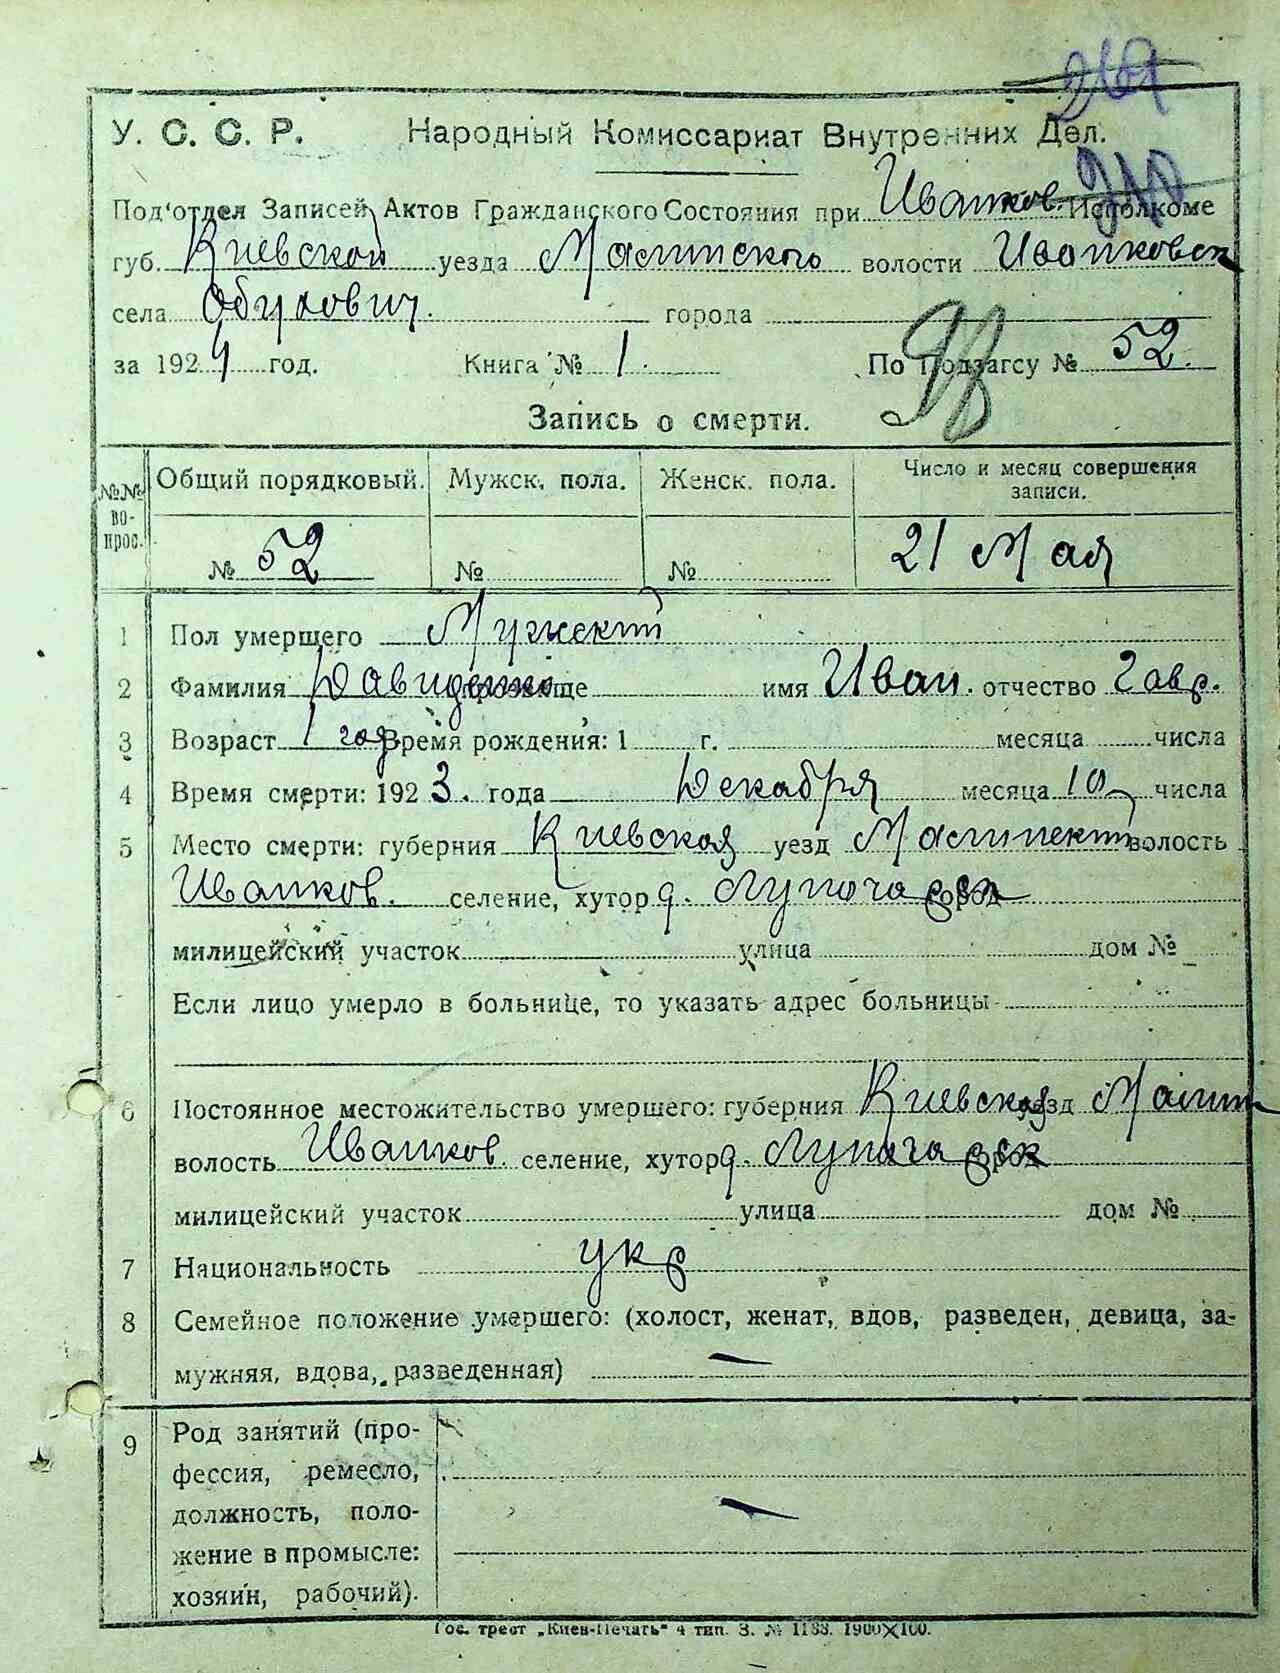 У. С. С. Р. Народный Комиссариат Внутренних Дел.
Под'отдел Записей Актов Гражданского Состояния при Иванков. Исполкоме
губ. Киевской уезда Малинского волости Иванковск
села Обухович. города
за 1924 год. Книга № 1. По Подзагсу № 52.
Запись о смерти.
№№ вопрос. Общий порядковый. Мужск. пола. Женск. пола. Число и месяц совершения записи.
№ 52 № № 21 Мая
1 Пол умершего Мужский
2 Фамилия Давиденко прозвище имя Иван. отчество Гавр.
3 Возраст 1 год Время рождения: 1 г. месяца числа
4 Время смерти: 1923. года Декабря месяца 10 числа
5 Место смерти: губерния Киевская уезд Малинский волость
Иванков. селение, хутор д. город
милицейский участок улица дом №
Если лицо умерло в больнице, то указать адрес больницы
6 Постоянное местожительство умершего: губерния Киевская уезд Малин
волость Иванков. селение, хутор д.
милицейский участок улица дом №
7 Национальность укр
8 Семейное положение умершего: (холост, женат, вдов, разведен, девица, за-
мужняя, вдова, разведенная) —
9 Род занятий (про-
фессия, ремесло,
должность, поло- —
жение в промысле:
хозяин, рабочий).
Гос. трест „Киев-Печать" 4 тип. З. № 1133. 1900×100.